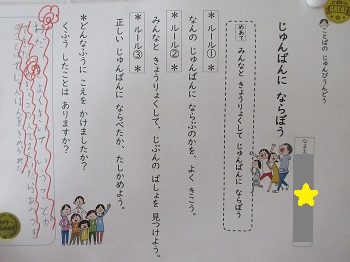 ことばの じゅんびうんどう
じゅんばんに ならぼう
なまえ
めあて みんなと きょうりょくして じゅんばんに ならぼう
*ルール①*
なんの じゅんばんに ならぶのかを、よく きこう。
*ルール②*
みんなと きょうりょくして、じぶんの ばしょを 見つけよう。
*ルール③*
正しい じゅんばんに ならべたか、たしかめよう。
*どんなふうに こえを かけましたか?
くふう したことは ありますか?